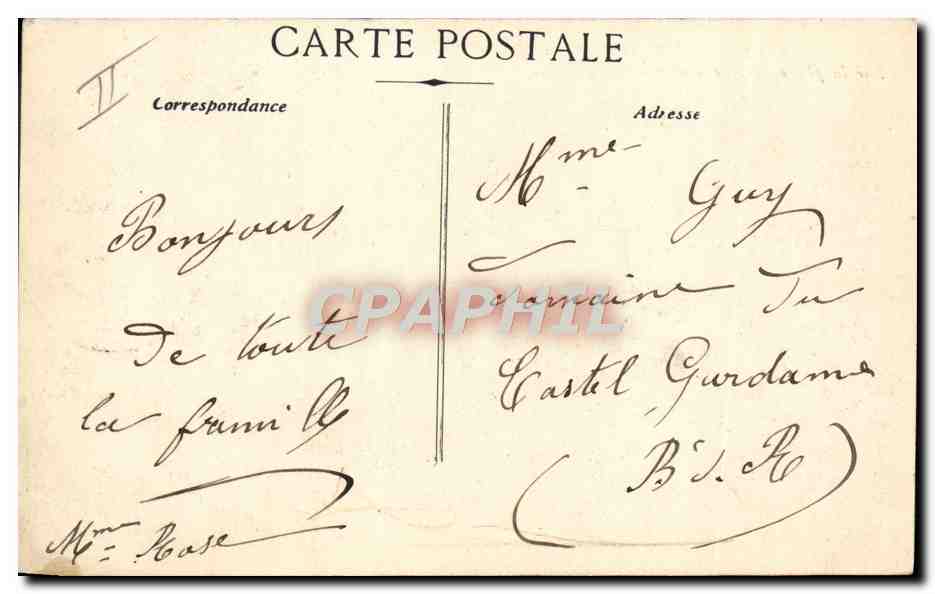 CARTE POSTALE
II
Correspondance
Bonjours
De toute
la famille
Mme Rose
Adresse
Mme Guy
domaine Du
Castel Gurdame
(B. d. R)
CPAPHIL